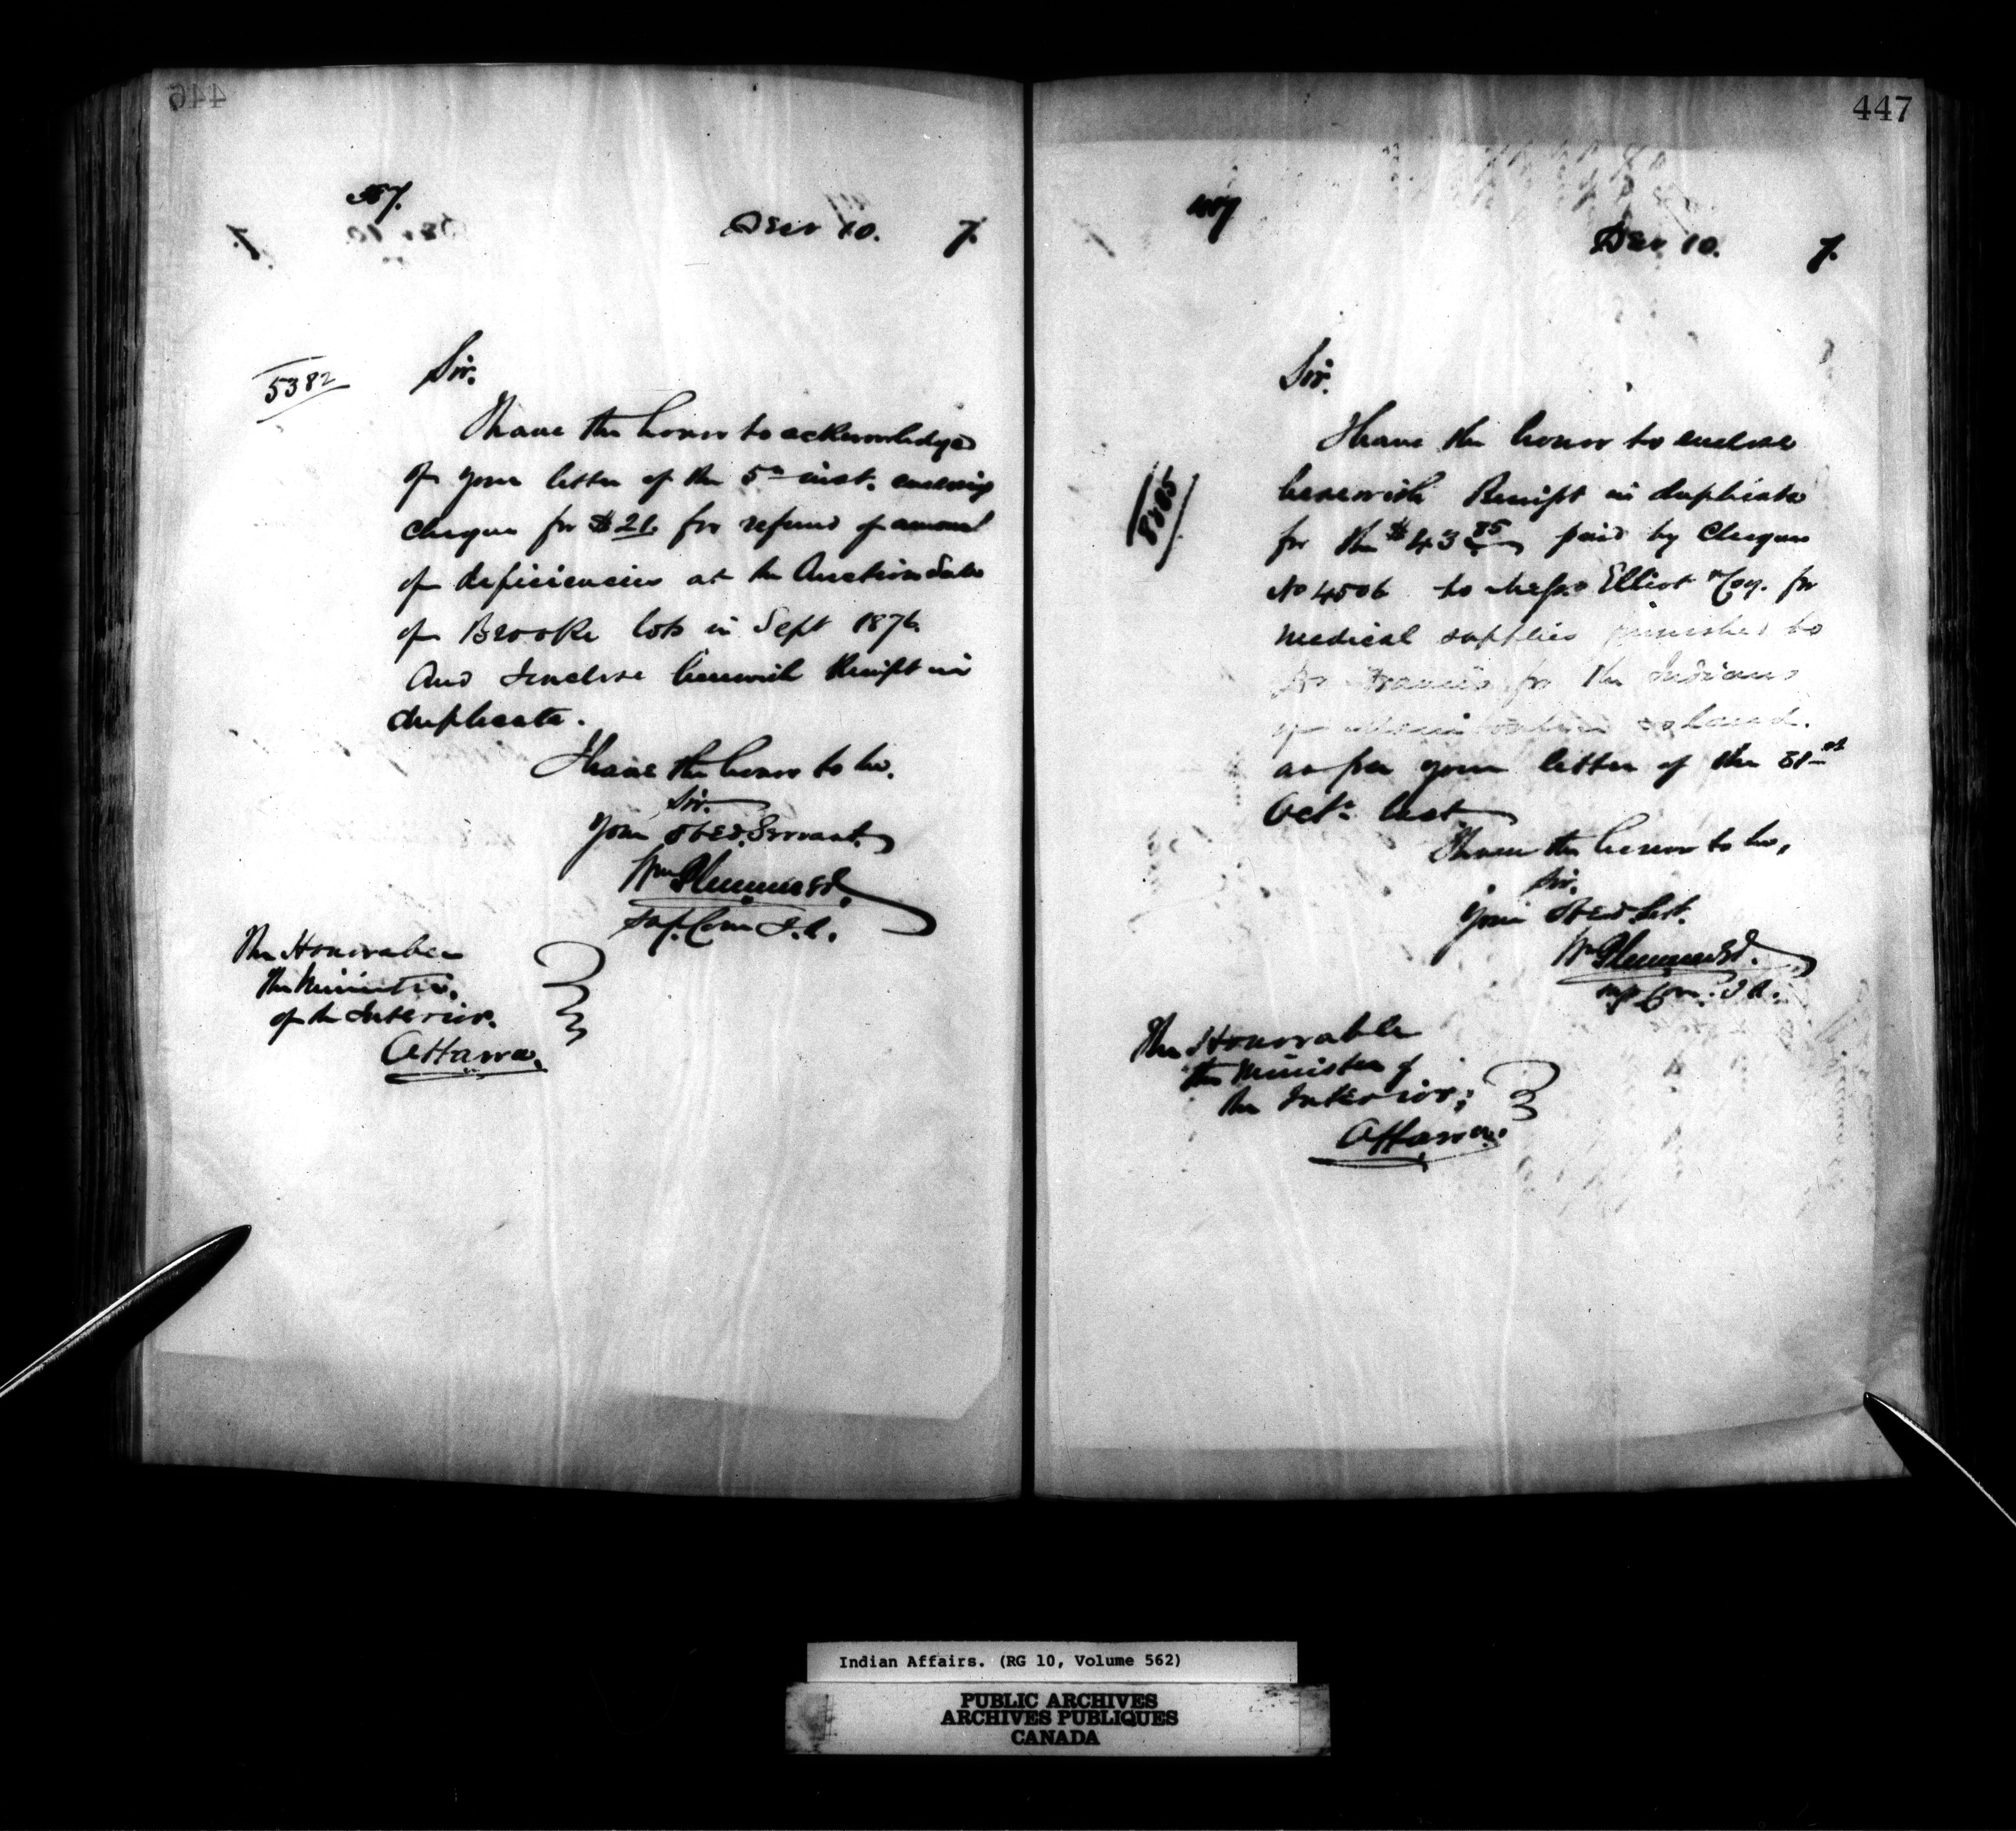 446
Decr 10. 7.
5382
Sir.
I have the honor to acknowledge
of your letter of the 5th inst. enclosing
cheque for $21. for refund of amount
of deficiencies at the Auction Sale
of Brooke lots in Sept 1876.
And Enclose herewith Receipt in
duplicate.
I have the honor to be.
Sir.
Your Obed. Servant.
Wm Plummer
Sup. Com I.A.
The Honorable
The Minister
of the Interior.
Ottawa.
447
Decr 10. 7.
Sir.
I have the honor to enclose
herewith Receipt in duplicate
for the $43 85 paid by Cheque
No 4506 to Messrs Elliot & Coy. for
medical supplies furnished to
Dr Francis for the Indians
of Manitoulin Island.
as per your letter of the 31st
Octr last
I have the honor to be,
Sir.
Your Obed. Sert.
Wm Plummer
Sup Com. I A.
The Honorable
the Minister of
the Interior;
Ottawa.
Indian Affairs. (RG 10, Volume 562)
PUBLIC ARCHIVES
ARCHIVES PUBLIQUES
CANADA